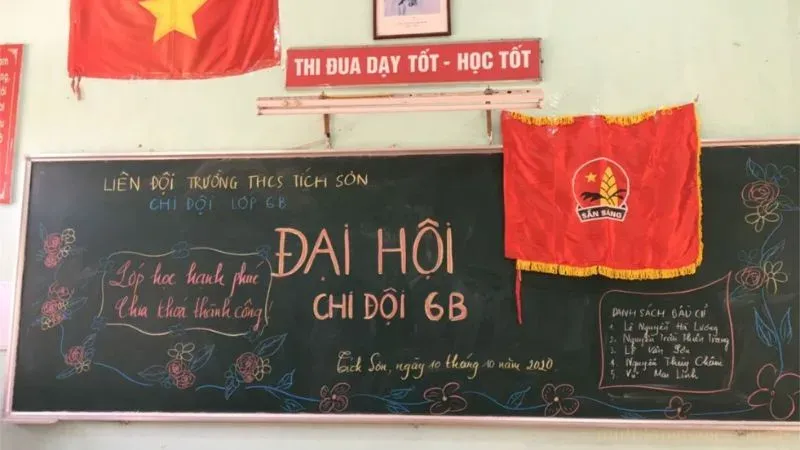 THI ĐUA DẠY TỐT - HỌC TỐT
LIÊN ĐỘI TRƯỜNG THCS TÍCH SƠN
CHI ĐỘI LỚP 6B
ĐẠI HỘI
CHI ĐỘI 6B
Lớp học hạnh phúc
Chìa khoá thành công!
Tích Sơn, ngày 10 tháng 10 năm 2020
SẴN SÀNG
DANH SÁCH BẦU CỬ
1. Lê Nguyễn Hà Lương
2. Nguyễn Trần Thiên Trang
3. Lý Văn
4. Nguyễn Thuỳ Châm
5. Vũ Mai Linh